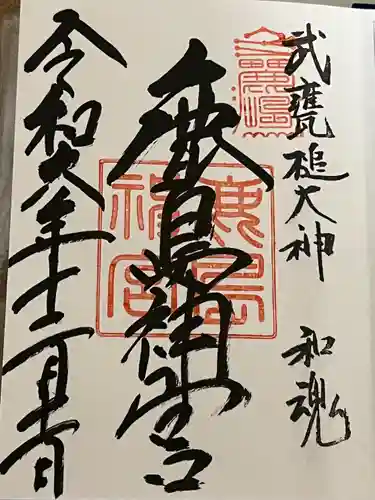 武甕槌大神 和魂
鹿島神宮
令和六年十二月
鹿島
神宮